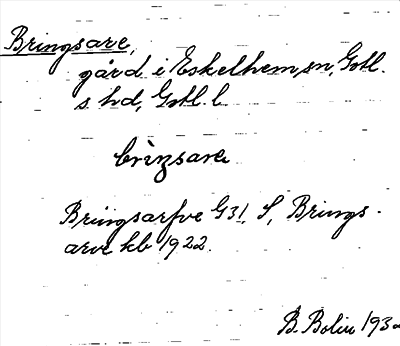 Bringsarve,
gård i Eskelhem sn, Gotl.
s. hd, Gotl. l.
brìŋsarvɐ
Bringsarfve G31, S, Brings-
arve kb 1922.
B. Bolin 193